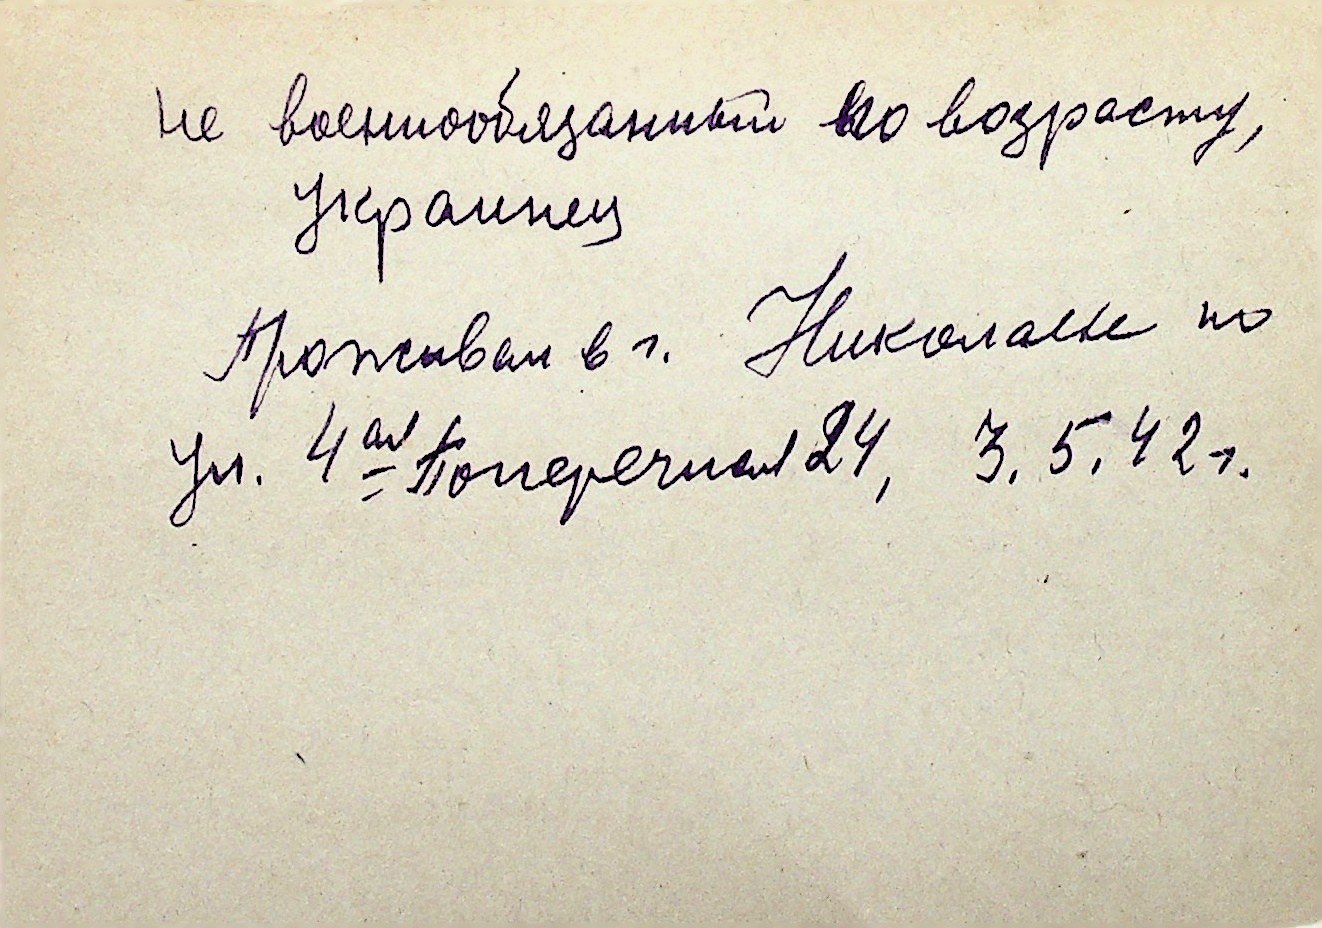 не военнообязанный по возрасту,
Украинец
Проживал в г. Николаеве по
ул. 4ая Поперечная 24, 3.5.42г.